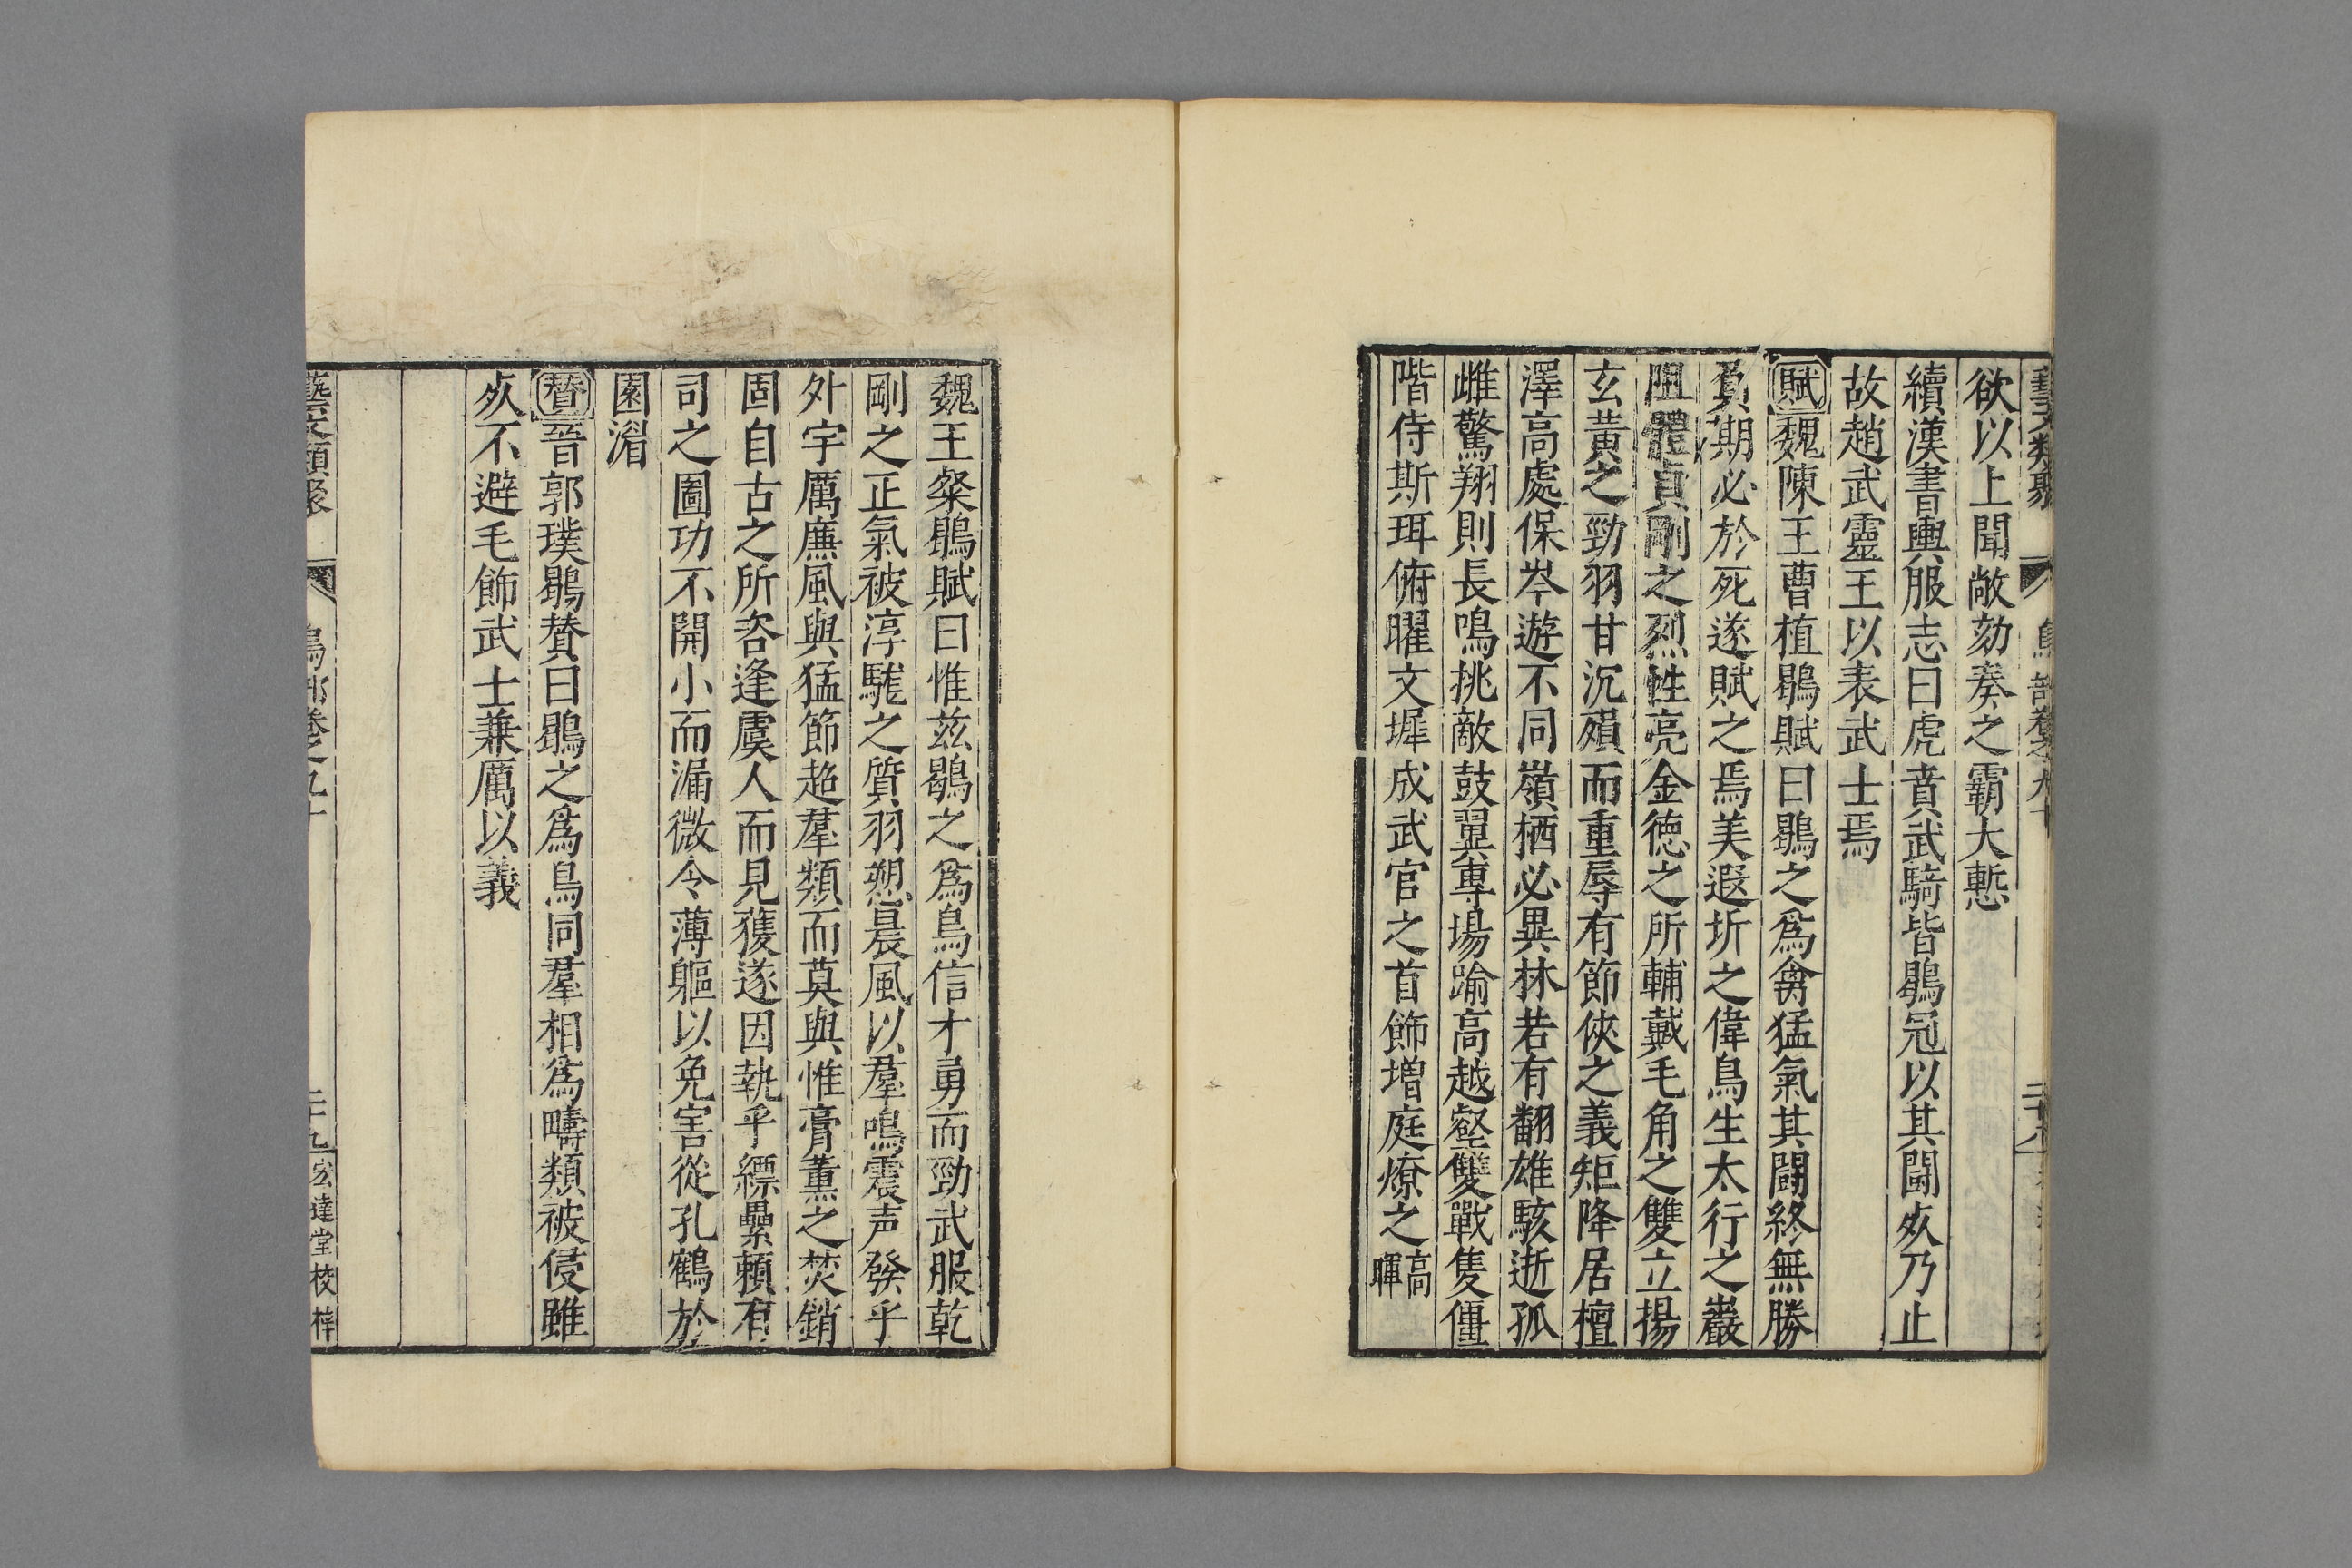 藝文類聚　鳥部卷之九十
欲以上聞敞劾奏之霸大慙
續漢書輿服志曰虎賁武騎皆鶡冠以其鬪死乃止
故趙武靈王以表武士焉
賦魏陳王曹植鶡賦曰鶡之爲禽猛氣其鬪終無勝
負期必於死遂賦之焉美遐圻之偉鳥生太行之巖
阻體貞剛之烈性亮金德之所輔戴毛角之雙立揚
玄黄之勁羽甘沉殞而重辱有節俠之義矩降居檀
澤高處保岑遊不同嶺栖必異林若有翻雄駭逝孤
雌驚翔則長鳴挑敵鼓翼專場踰高越壑雙戰隻僵
階侍斯珥俯曜文墀成武官之首飾增庭燎之高暉
魏王粲鶡賦曰惟兹鶡之爲鳥信才勇而勁武服乾
剛之正氣被淳駹之質羽愬晨風以羣鳴震声發乎
外宇厲廉風與猛節超羣類而莫與惟膏薰之焚銷
固自古之所咨逢虞人而見獲遂因執乎縹纍賴有
司之圖功不開小而漏微令薄軀以免害從孔鶴於
園湽
贊晉郭璞鶡賛曰鶡之爲鳥同羣相爲疇類被侵雖
死不避毛飾武士兼厲以義
藝文類聚　鳥部卷之九十　二十九　宏達堂校梓